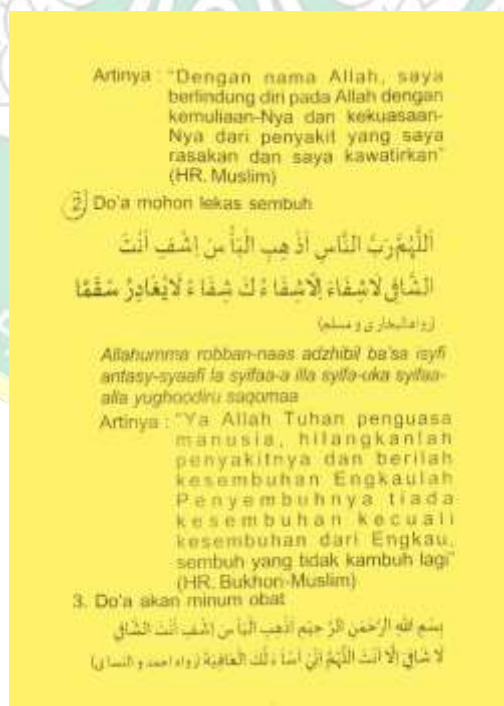 Artinya : "Dengan nama Allah, saya
berlindung diri pada Allah dengan
kemuliaan-Nya dan kekuasaan-
Nya dari penyakit yang saya
rasakan dan saya kawatirkan"
(HR. Muslim)
2. Do'a mohon lekas sembuh
اَللّٰهُمَّ رَبَّ النَّاسِ اَذْهِبِ الْبَأْ سَ اِشْفِ اَنْتَ
الشَّافِى لَاشِفَاءَ اِلَّاشِفَا ءُكَ شِفَا ءً لَايُغَادِرُ سَقَمًا
(رواه البخارى و مسلم)
Allahumma robban-naas adzhibil ba'sa isyfi
antasy-syaafi la syifaa-a illa syifa-uka syifaa-
alla yughoodiru saqomaa
Artinya : "Ya Allah Tuhan penguasa
manusia, hilangkanlah
penyakitnya dan berilah
kesembuhan Engkaulah
Penyembuhnya tiada
kesembuhan kecuali
kesembuhan dari Engkau,
sembuh yang tidak kambuh lagi"
(HR. Bukhori-Muslim)
3. Do'a akan minum obat
بِسْمِ اللهِ الرَّحْمٰنِ الرَّ حِيْمِ اَذْهِبِ الْبَأْ سَ اِشْفِ اَنْتَ الشَّافِى
لَا شَافِىَ اِلَّا اَنْتَ اَللّٰهُمَّ اِنِّى اَسْأَ لُكَ الْعَافِيَةَ (رواه احمد و النساى)